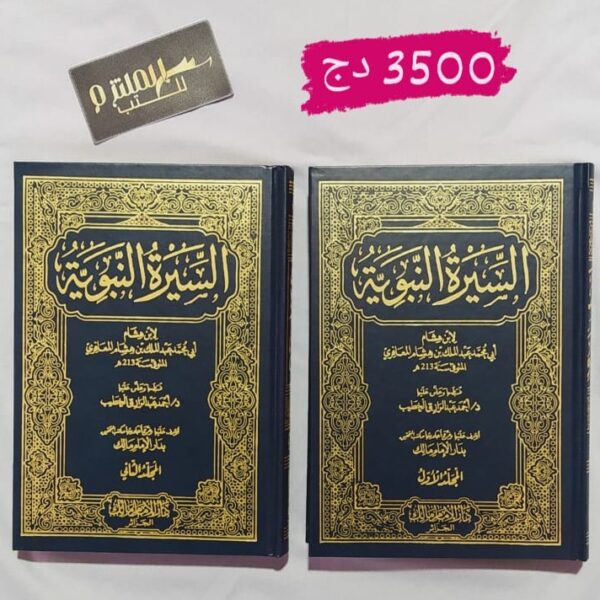 الملتزم
للكتب
3500 دج
السِّيرَةُ النَّبَوِيَّةُ
لابن هشام
أبي محمد عبد الملك بن هشام المعافري
المتوفى سنة 213 هـ
د/ أحمد عبد الرزاق الخطيب
بدار الإمام مالك
المجلد الأول
دار الإمام مالك
الجزائر
السِّيرَةُ النَّبَوِيَّةُ
لابن هشام
أبي محمد عبد الملك بن هشام المعافري
المتوفى سنة 213 هـ
د/ أحمد عبد الرزاق الخطيب
بدار الإمام مالك
المجلد الثاني
دار الإمام مالك
الجزائر